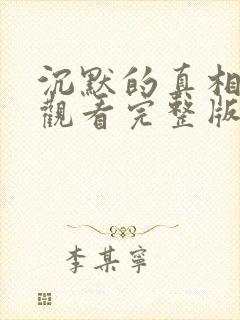 沉默的真相
觀看完整版
李某寧